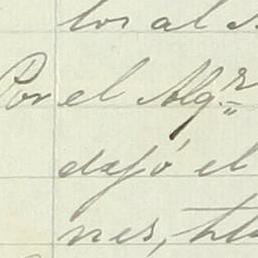 los al
Por el Algr
dejó el
nes,